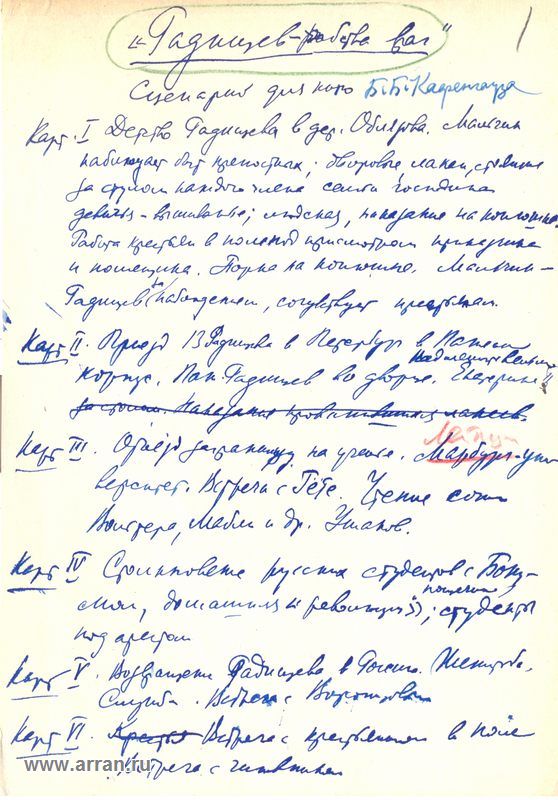 1
„Радищев – рабства враг"
Сценарий для кино Б.Б. Кафенгауза
Карт. I Детство Радищева в дер. Облязова. Мальчик
наблюдает быт крепостных; дворовые лакеи, стоящие
за стулом каждого члена семьи господина
девичья – вышиванье; людская, наказание на конюшне.
Работа крестьян в поле под присмотром приказчика
и помещика. Порка на конюшне. Мальчик-
Радищев наблюдает, сочувствует крестьянам.
Карт II. Приезд Радищева в Петербург в Пажеский
корпус. Паж Радищев во дворце. Екатерина
за столом. Наказания
Карт III. Отъезд заграницу на ученье. Марбург-уни
Лейпциг
верситет. Встреча с Гёте. Чтение соч.
Вольтера, Мабли и др. Ушаков.
Карт IV Столкновение русских студентов с Боку-
мом, домашняя „революция"; студенты
под арестом
Карт V. Возвращение Радищева в Россию. Женитьба.
Служба. Встреча с Воронцовым
Карт VI. Встреча с крестьянином в поле
Встреча с
www.arran.ru